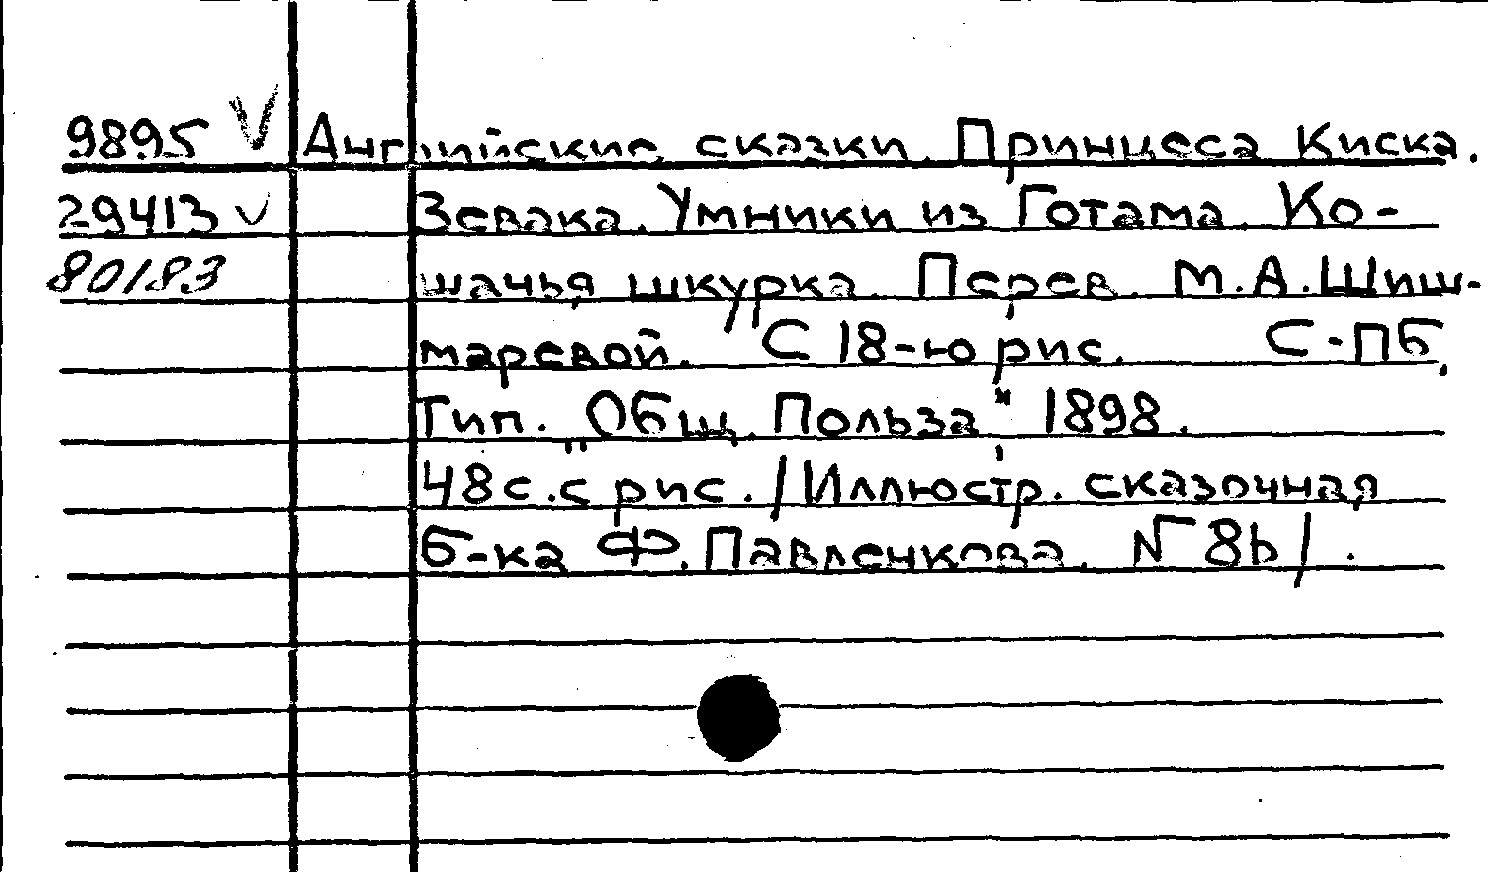 9895 V Английские сказки. Принцеса Киска.
29413 V Зевака. Умники из Готама. Ко-
80183 шачья шкурка. Перев. М.А.Шиш-
маревой. С 18-ю рис. С-ПБ,
Тип. „Общ. Польза" 1898.
48с.с рис. /Иллюстр. сказочная
б-ка Ф.Павленкова. № 8b/.